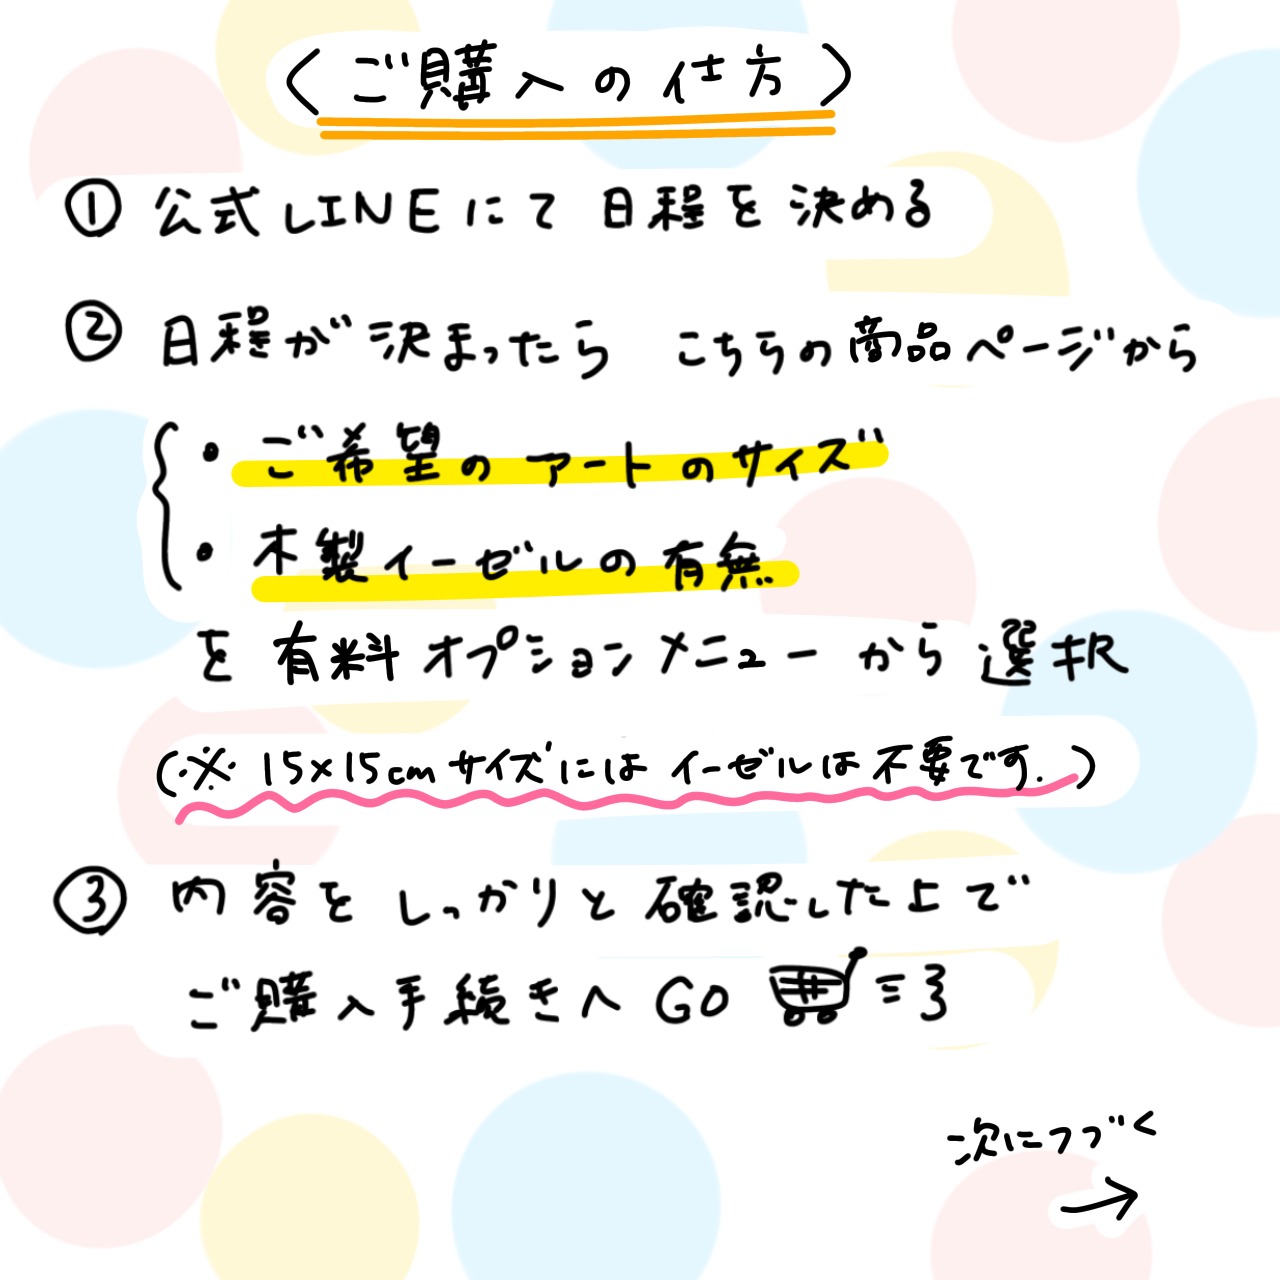 〈ご購入の仕方〉
① 公式LINEにて 日程を 決める
② 日程が決まったら こちらの商品ページから
・ご希望のアートのサイズ
・木製イーゼルの有無
を 有料オプションメニューから選択
(※ 15×15cmサイズにはイーゼルは不要です.)
③ 内容をしっかりと確認した上で
ご購入手続きへGO
次につづく
→